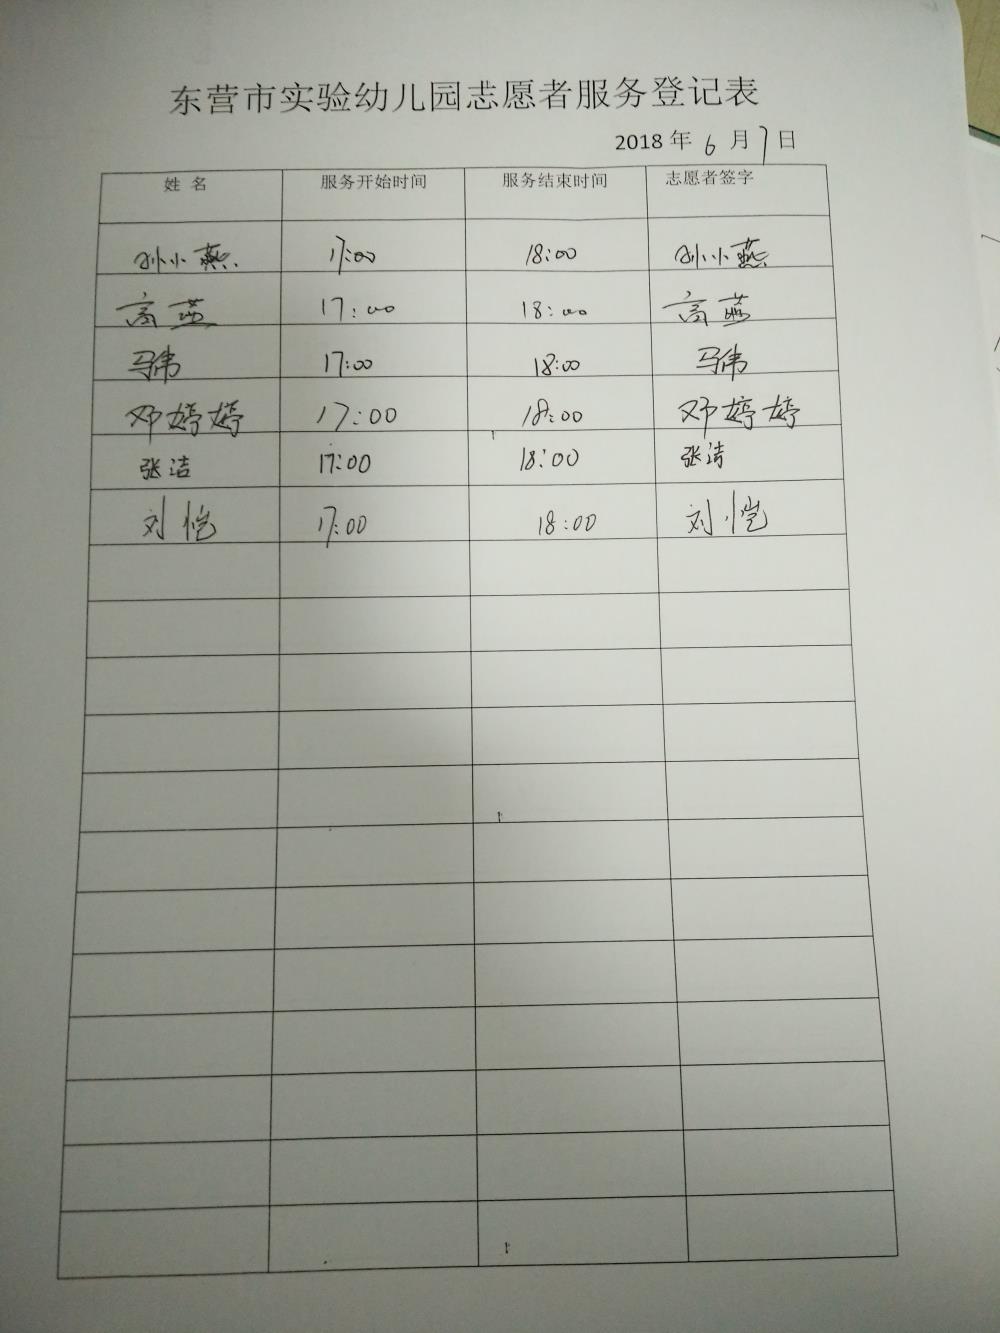 东营市实验幼儿园志愿者服务登记表
2018 年 6 月 7 日
姓 名 服务开始时间 服务结束时间 志愿者签字
孙小燕 17:00 18:00 孙小燕
高 17:00 18:00 高
马伟 17:00 18:00 马伟
邓婷婷 17:00 18:00 邓婷婷
张洁 17:00 18:00 张洁
刘恺 17:00 18:00 刘恺